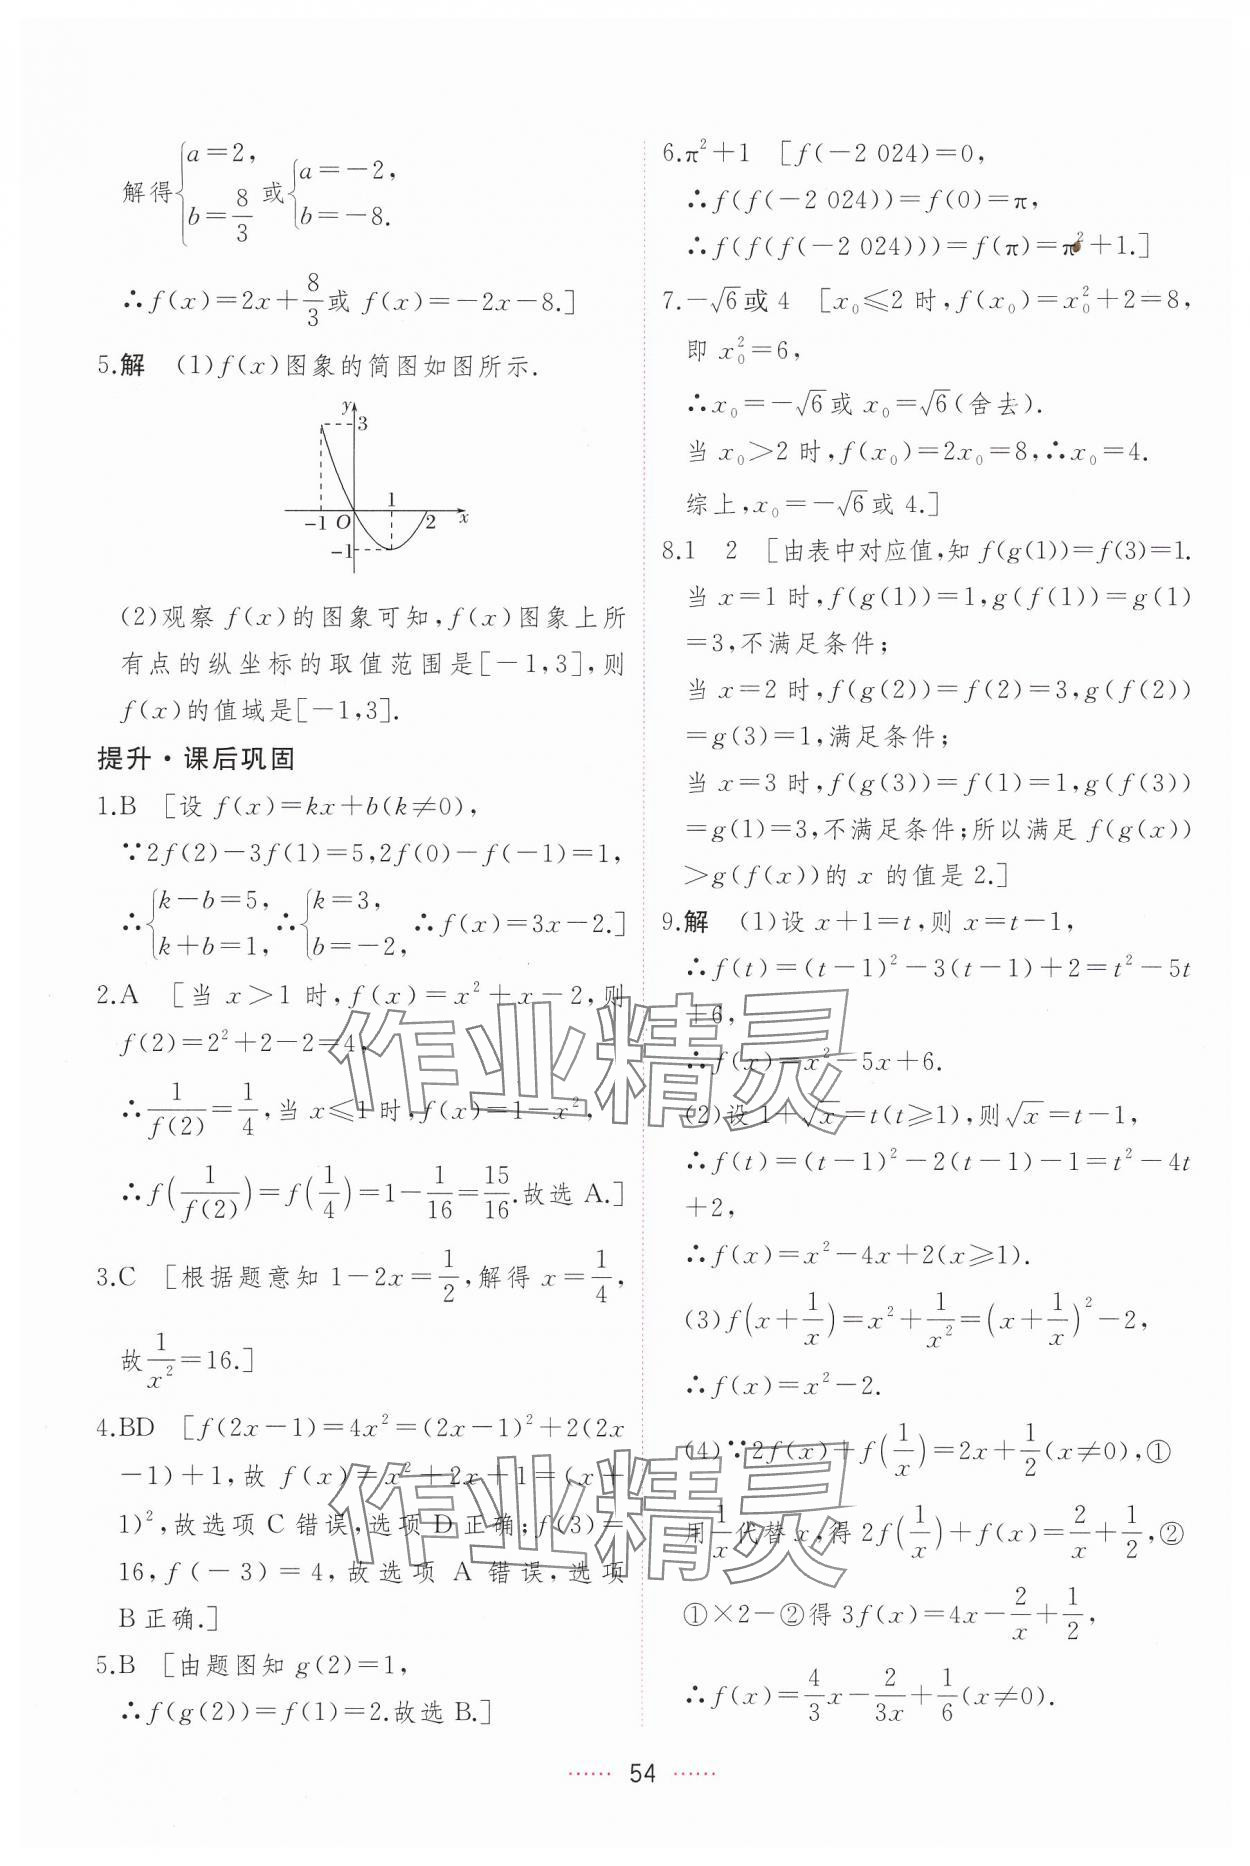 解得{a=2, b=8/3 或{a=-2, b=-8.
∴f(x)=2x+8/3或 f(x)=-2x-8.]
5.解 (1)f(x)图象的简图如图所示.
y
3
1
-1 O 2 x
-1
(2)观察 f(x)的图象可知,f(x)图象上所
有点的纵坐标的取值范围是[-1,3],则
f(x)的值域是[-1,3].
提升·课后巩固
1.B [设 f(x)=kx+b(k≠0),
∵2f(2)-3f(1)=5,2f(0)-f(-1)=1,
∴{k-b=5, k+b=1, ∴{k=3, b=-2, ∴f(x)=3x-2.]
2.A [当 x>1 时,f(x)=x²+x-2,则
f(2)=2²+2-2=4,
∴1/f(2)=1/4,当 x≤1 时,f(x)=1-x²,
∴f(1/f(2))=f(1/4)=1-1/16=15/16.故选 A.]
3.C [根据题意知 1-2x=1/2,解得 x=1/4,
故1/x²=16.]
4.BD [f(2x-1)=4x²=(2x-1)²+2(2x
-1)+1,故 f(x)=x²+2x+1=(x+
1)²,故选项 C 错误,选项 D 正确;f(3)=
16,f(-3)=4,故选项 A 错误,选项
B 正确.]
5.B [由题图知 g(2)=1,
∴f(g(2))=f(1)=2.故选 B.]
6.π²+1 [f(-2 024)=0,
∴f(f(-2 024))=f(0)=π,
∴f(f(f(-2 024)))=f(π)=π²+1.]
7.-√6或 4 [x₀≤2 时,f(x₀)=x₀²+2=8,
即 x₀²=6,
∴x₀=-√6或 x₀=√6(舍去).
当 x₀>2 时,f(x₀)=2x₀=8,∴x₀=4.
综上,x₀=-√6或 4.]
8.1 2 [由表中对应值,知 f(g(1))=f(3)=1.
当 x=1 时,f(g(1))=1,g(f(1))=g(1)
=3,不满足条件;
当 x=2 时,f(g(2))=f(2)=3,g(f(2))
=g(3)=1,满足条件;
当 x=3 时,f(g(3))=f(1)=1,g(f(3))
=g(1)=3,不满足条件;所以满足 f(g(x))
>g(f(x))的 x 的值是 2.]
9.解 (1)设 x+1=t,则 x=t-1,
∴f(t)=(t-1)²-3(t-1)+2=t²-5t
+6,
∴f(x)=x²-5x+6.
(2)设 1+√x=t(t≥1),则√x=t-1,
∴f(t)=(t-1)²-2(t-1)-1=t²-4t
+2,
∴f(x)=x²-4x+2(x≥1).
(3)f(x+1/x)=x²+1/x²=(x+1/x)²-2,
∴f(x)=x²-2.
(4)∵2f(x)+f(1/x)=2x+1/2(x≠0),①
用1/x代替 x,得 2f(1/x)+f(x)=2/x+1/2,②
①×2-②得 3f(x)=4x-2/x+1/2,
∴f(x)=4/3x-2/3x+1/6(x≠0).
作业精灵
作业精灵
54